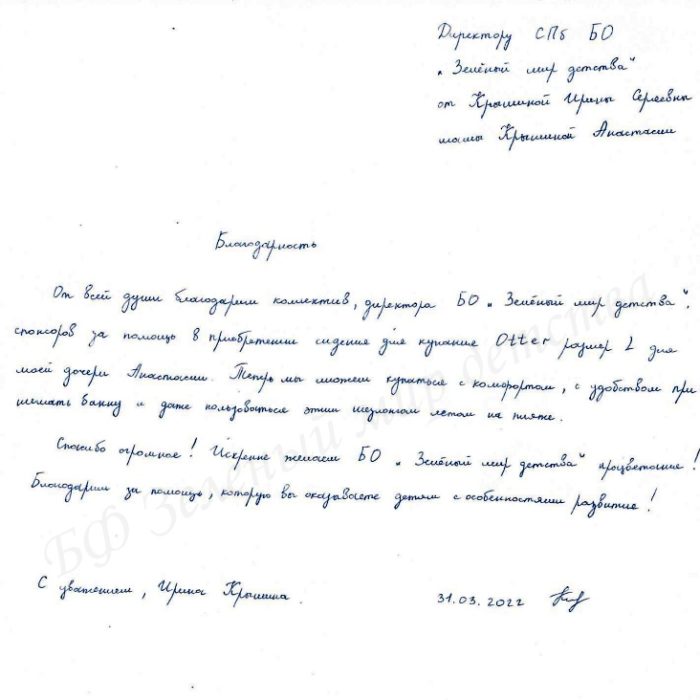 Директору СПб БО
„Зелёный мир детства"
от Крышиной Ирины Сергеевны
мамы Крышиной Анастасии
Благодарность
От всей души благодарим коллектив, директора БО „Зелёный мир детства",
спонсоров за помощь в приобретении сидения для купание Otter размер L для
моей дочери Анастасии. Теперь мы можем купаться с комфортом, с удобством при
нимать ванну и даже пользоваться этим шезлонгом летом на пляже.
Спасибо огромное! Искренне желаем БО „Зелёный мир детства" процветание!
Благодарим за помощь, которую вы оказываете детям с особенностями развитие!
С уважением, Ирина Крышина.
31.03.2022
БФ Зеленый мир детства